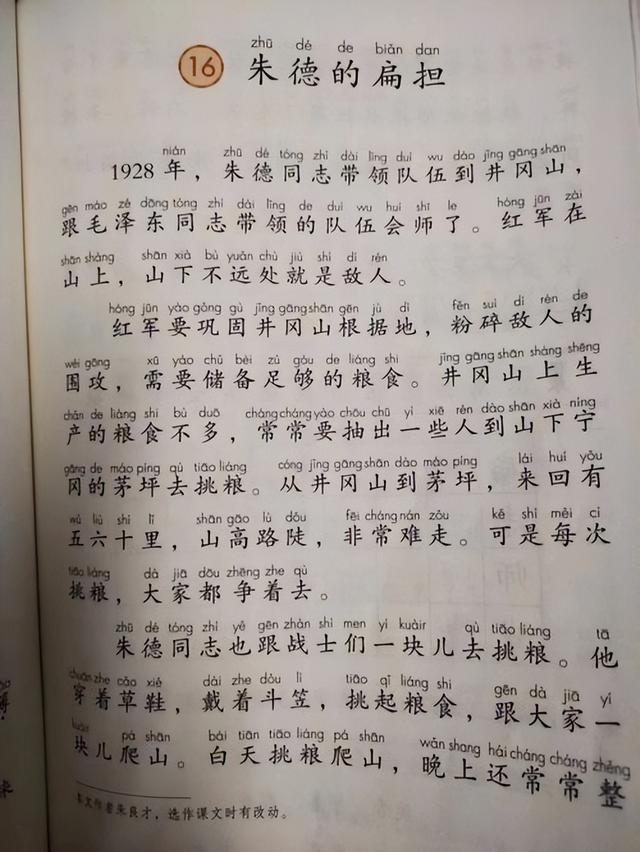 zhū dé de biǎn dan
16 朱德的扁担
nián zhū dé tóng zhì dài lǐng duì wu dào jǐng gāng shān
1928年，朱德同志带领队伍到井冈山，
gēn máo zé dōng tóng zhì dài lǐng de duì wu huì shī le hóng jūn zài
跟毛泽东同志带领的队伍会师了。红军在
shān shàng shān xià bù yuǎn chù jiù shì dí rén
山上，山下不远处就是敌人。
hóng jūn yào gǒng gù jǐng gāng shān gēn jù dì fěn suì dí rén de
红军要巩固井冈山根据地，粉碎敌人的
wéi gōng xū yào chǔ bèi zú gòu de liáng shi jǐng gāng shān shàng shēng
围攻，需要储备足够的粮食。井冈山上生
chǎn de liáng shi bù duō cháng cháng yào chōu chū yì xiē rén dào shān xià níng
产的粮食不多，常常要抽出一些人到山下宁
gāng de máo píng qù tiāo liáng cóng jǐng gāng shān dào máo píng lái huí yǒu
冈的茅坪去挑粮。从井冈山到茅坪，来回有
wǔ liù shí lǐ shān gāo lù dǒu fēi cháng nán zǒu kě shì měi cì
五六十里，山高路陡，非常难走。可是每次
tiāo liáng dà jiā dōu zhēng zhe qù
挑粮，大家都争着去。
zhū dé tóng zhì yě gēn zhàn shì men yí kuàir qù tiāo liáng tā
朱德同志也跟战士们一块儿去挑粮。他
chuān zhe cǎo xié dài zhe dǒu lì tiāo qǐ liáng shi gēn dà jiā yí
穿着草鞋，戴着斗笠，挑起粮食，跟大家一
kuàir pá shān bái tiān tiāo liáng pá shān wǎn shang hái cháng cháng zhěng
块儿爬山。白天挑粮爬山，晚上还常常整
本文作者朱良才，选作课文时有改动。